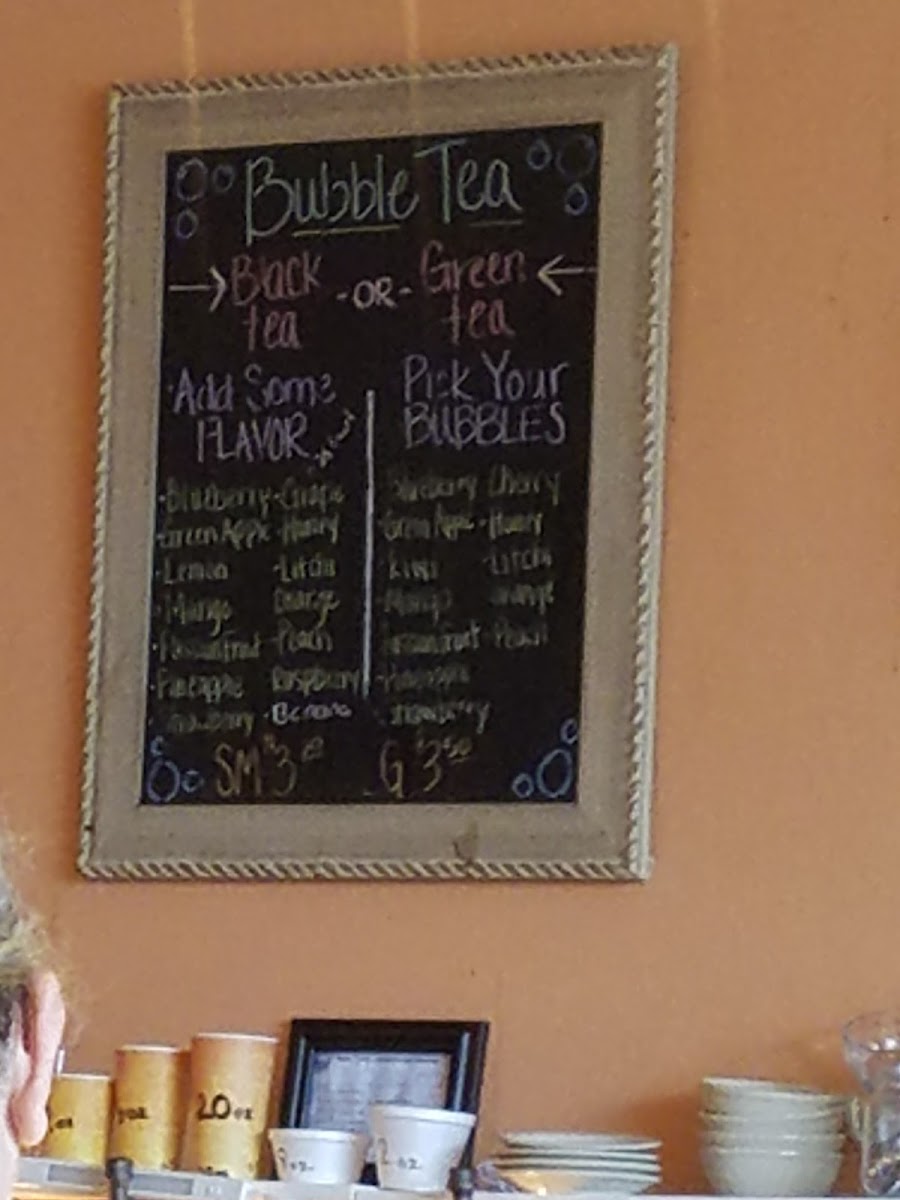 Bubble Tea
Black tea -OR- Green tea
Add Some FLAVOR
Pick Your BUBBLES
·Blueberry ·Grape
·Green Apple ·Honey
·Lemon ·Litchi
·Mango Orange
·Passionfruit ·Peach
·Pineapple Raspberry
Strawberry ·Banana
Blueberry Cherry
·Green Apple ·Honey
·Kiwi ·Litchi
·Mango Orange
Passionfruit Peach
·Pineapple
Strawberry
SM $3
G $3.50
oz
oz
20 oz
oz.
oz.